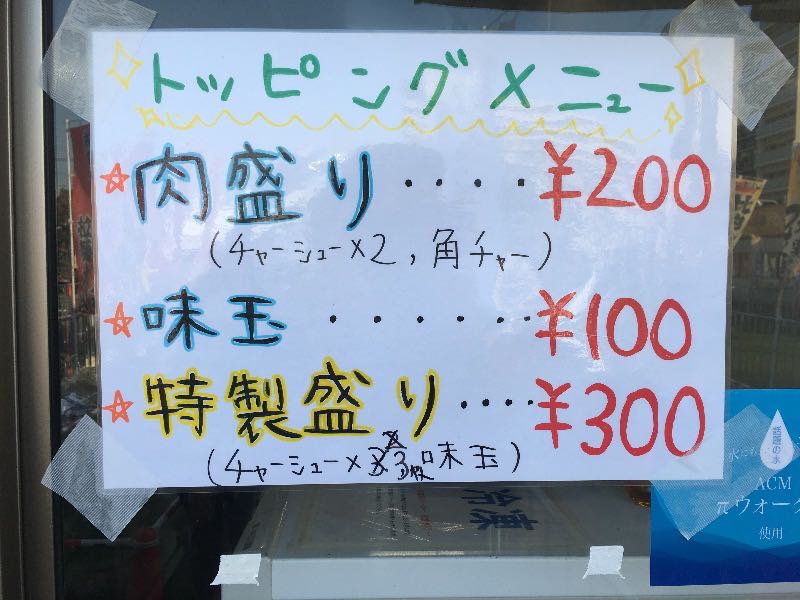 トッピングメニュー
☆肉盛り････¥200
(チャーシュー×2, 角チャー)
☆味玉･･････¥100
☆特製盛り････¥300
(チャーシュー×3枚 味玉)
冷凍
話題の水
ACM
πウォー
使用